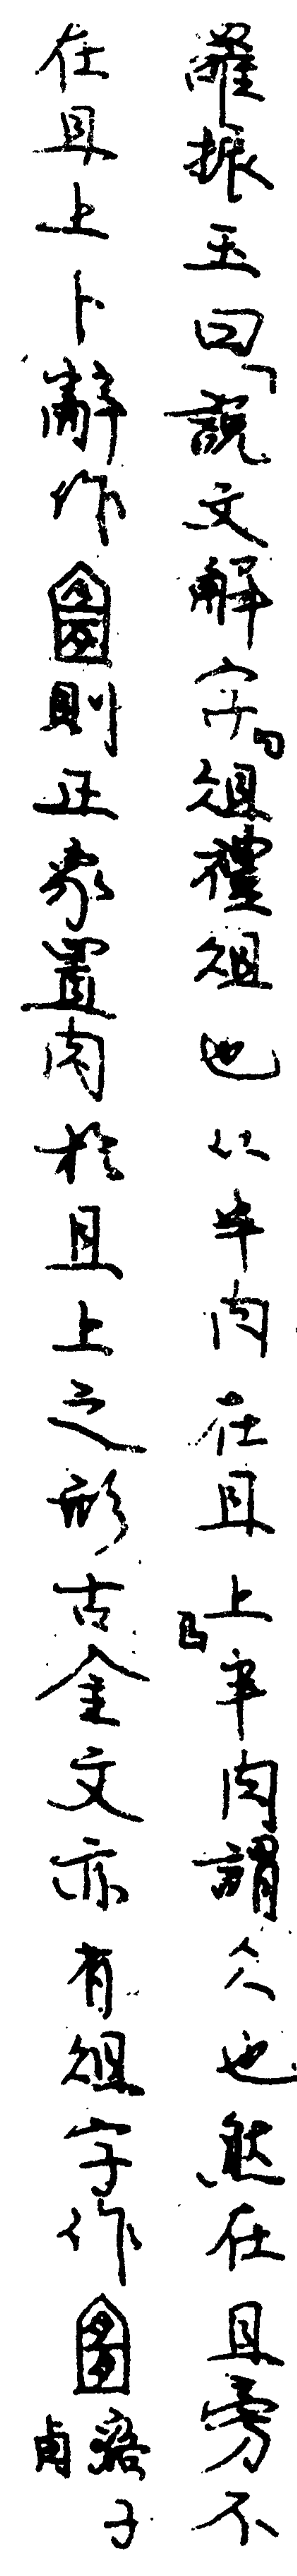 羅振玉曰「說文解字『俎禮俎也从半肉在且上』半肉謂仌也然在且旁不
在且上卜辭作則正象置肉於且上之形古金文亦有俎字作貉子卣